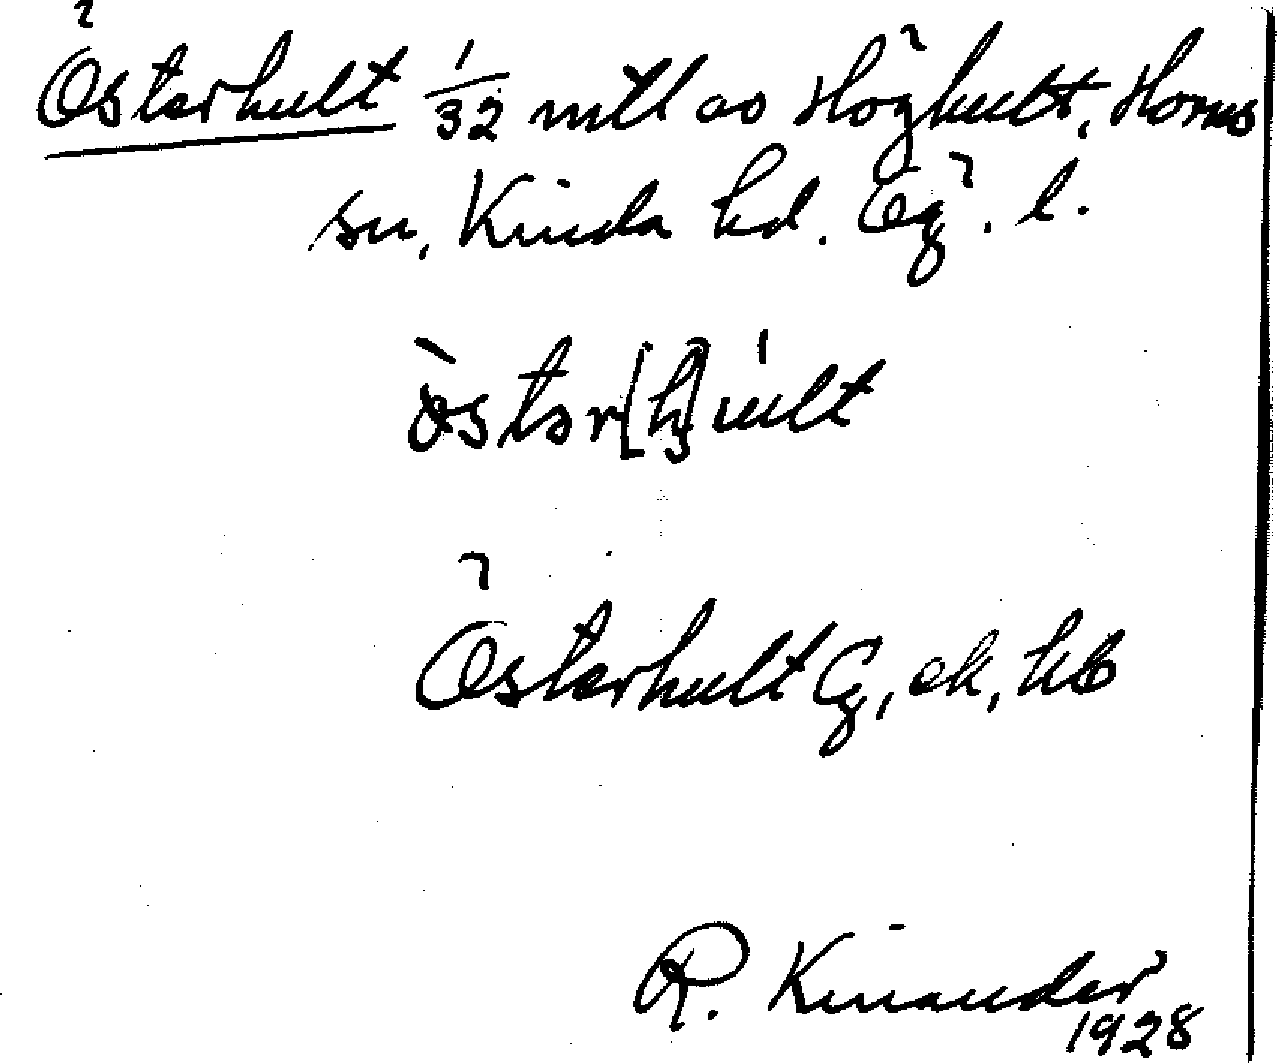 Österhult 1/32 mtl av Höghult, Horns
sn, Kinda hd. Ög. l.
östər[h]ult
Österhult Gg, ek, hb
R. Kinander
1928